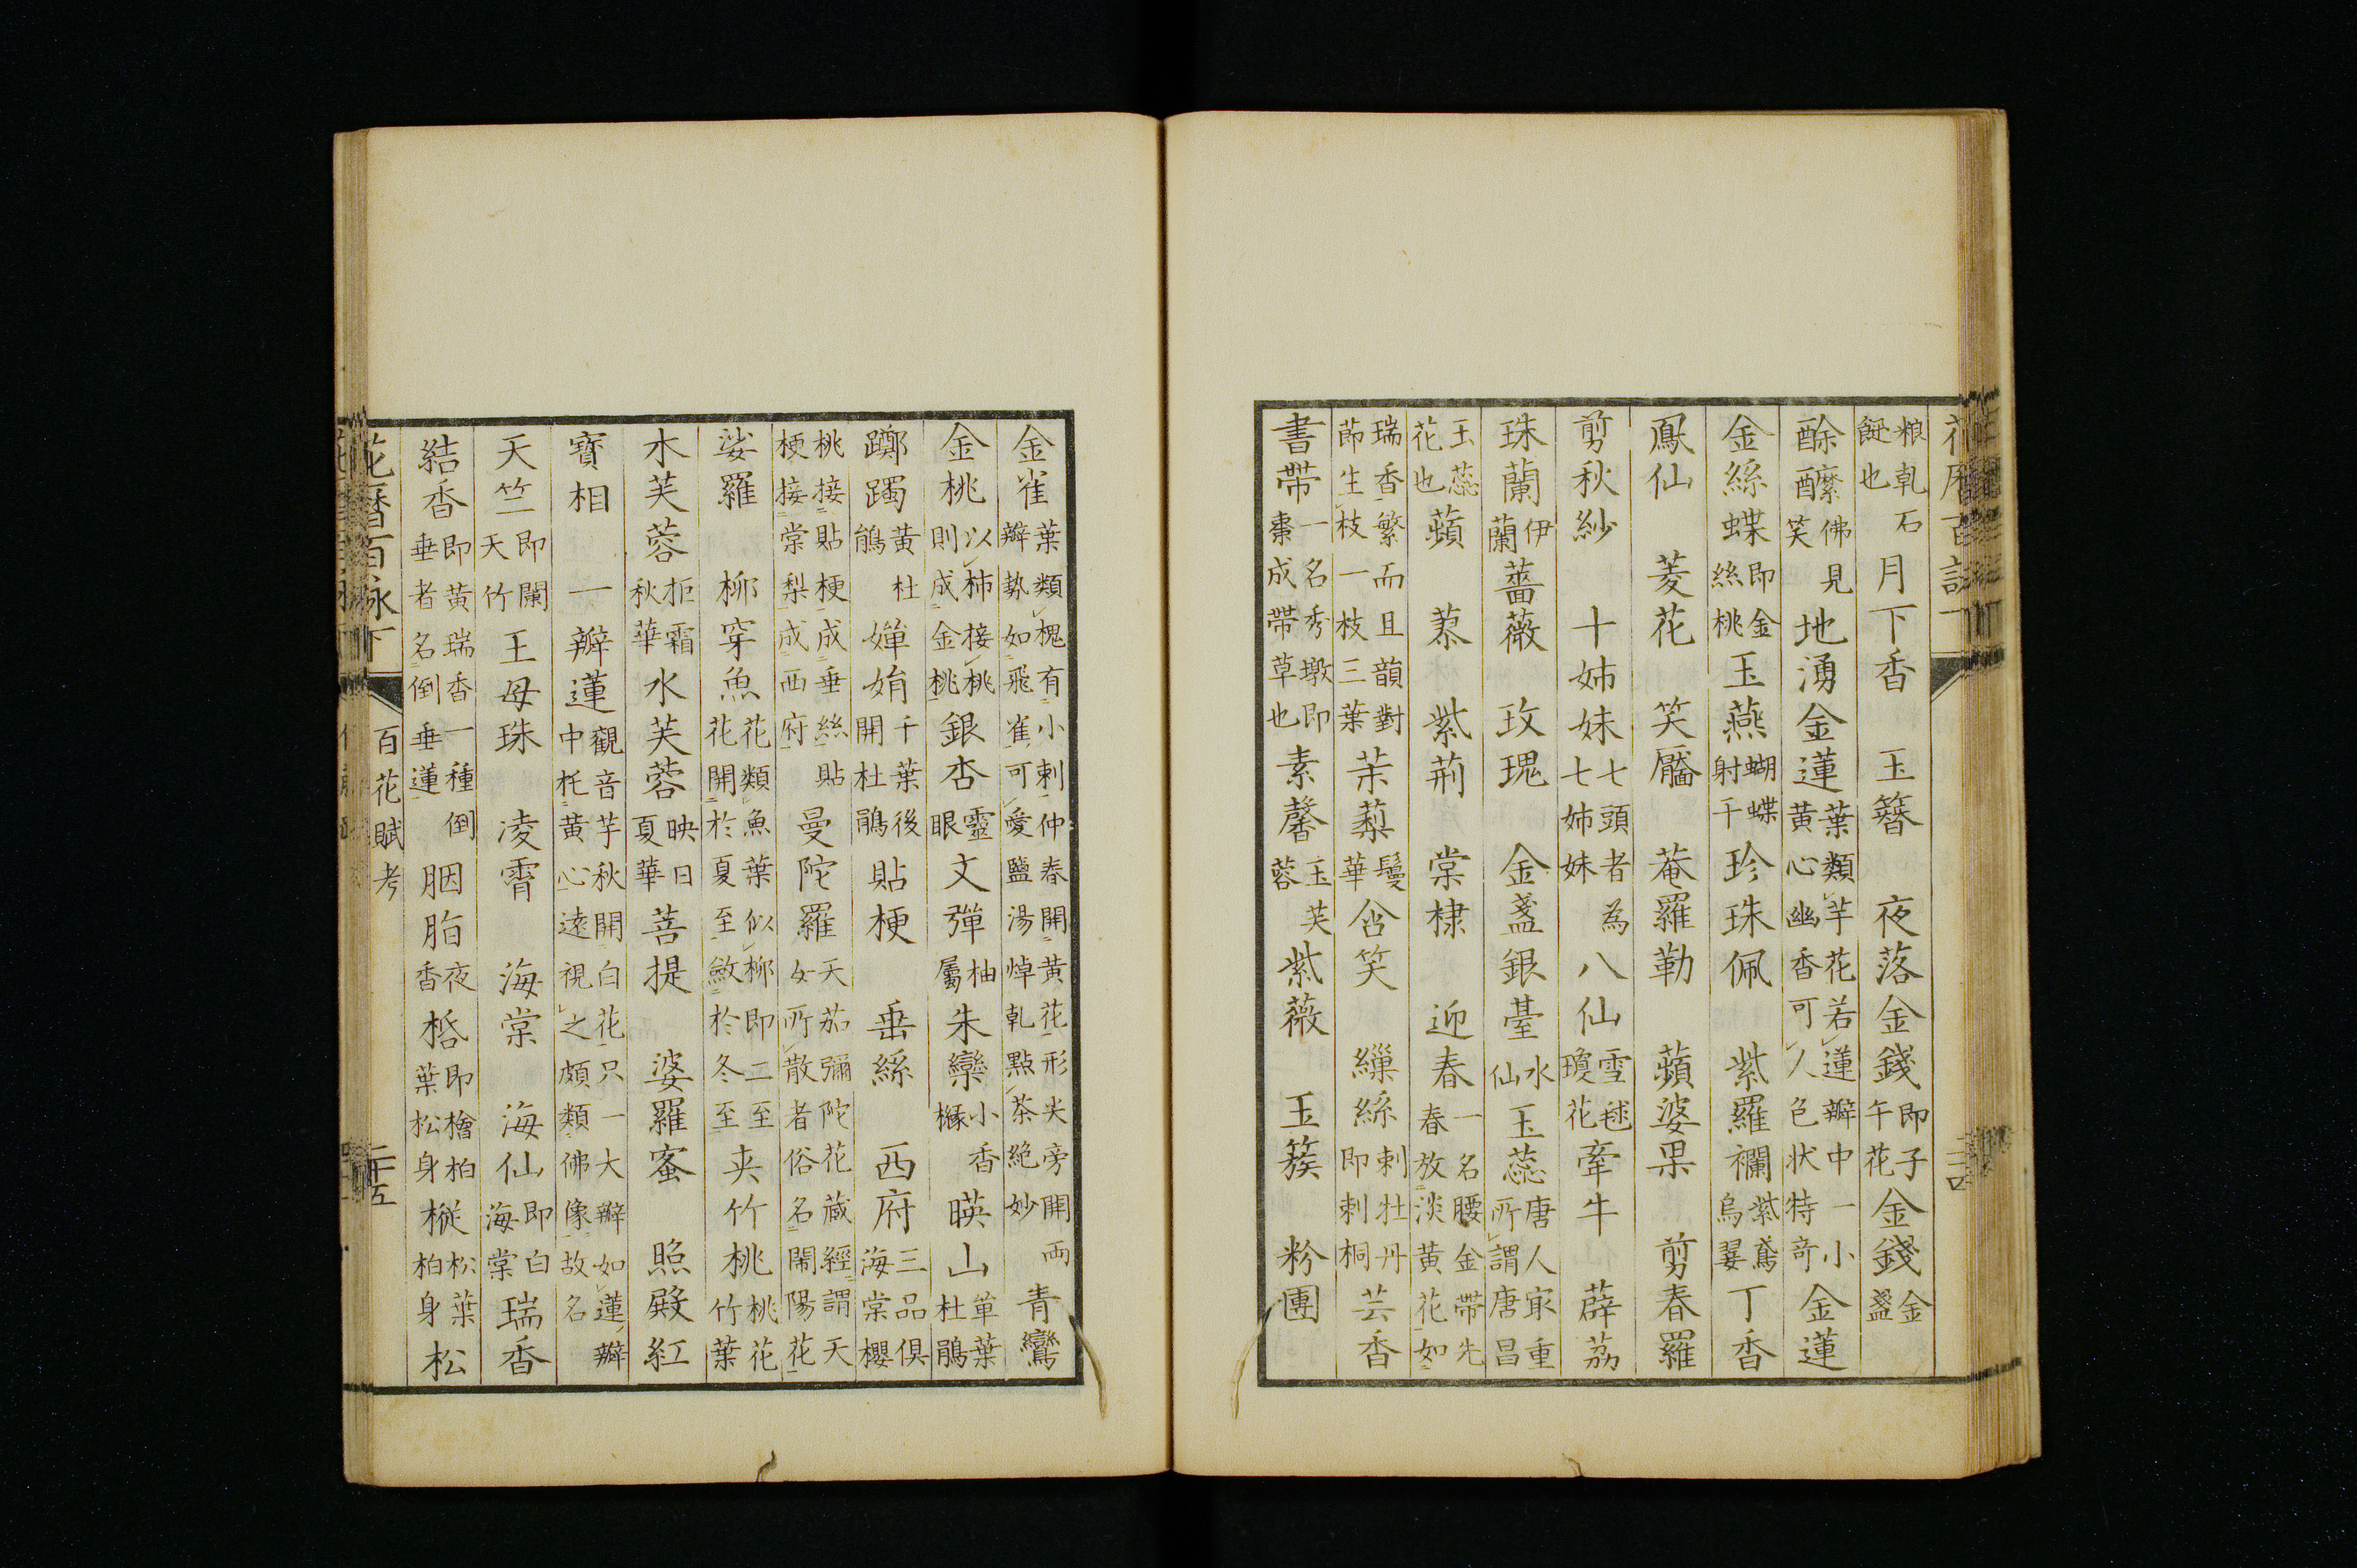 粮乾石
也
月下香 玉簪 夜落金錢 即子午花 金錢 金盞
酴醾 佛見笑 地湧金蓮 葉類芋花若蓮瓣中一小黃心幽香可人色狀特奇 金蓮
金絲蝶 即金絲桃 玉燕 蝴蝶射干 珍珠佩 紫羅襴 紫鳶烏翣 丁香
鳳仙 菱花 笑靨 菴羅勒 蘋婆果 剪春羅
剪秋紗 十姊妹 七頭者為七姊妹 八仙 雪毬瓊花 牽牛 薜茘
珠蘭 伊蘭 薔薇 玫瑰 金盞銀臺 水仙 玉蕊 唐人家重所謂唐昌
玉蕊花也 蘋 紫荊 棠棣 迎春 一名腰金帶先春放淡黃花如
瑞香繁而且韻對節生枝一枝三葉 茉䔧 鬘華 含笑 繅絲 刺牡丹即刺桐 芸香
書帶 一名秀墩即棗成帶草也 素馨 玉芙蓉 紫薇 玉簇 粉團
金雀 葉類槐有小刺仲春開黃花形尖旁開兩瓣勢如飛雀可愛鹽湯焯乾點茶絕妙 青鸞
金桃 以柿接桃則成金桃 銀杏 靈眼 文彈 柚屬 朱欒 小香櫞 暎山 單葉杜鵑
躑躅 黃杜鵑 嬋娟 千葉後開杜鵑 貼梗 垂絲 西府 三品俱海棠櫻
桃接貼梗成垂絲貼梗接棠梨成西府 曼陀羅 天茄彌陀花藏經謂天女所散者俗名鬧陽花
娑羅 柳穿魚 花類魚葉似柳即二至花開於夏至斂於冬至 夾竹桃 桃花竹葉
木芙蓉 拒霜秋華 水芙蓉 映日夏華 菩提 婆羅蜜 照殿紅
寶相 一瓣蓮 觀音芋秋開白花只一大瓣如蓮瓣中托黃心遠視之頗類佛像故名
天竺 即闌天竹 王母珠 凌霄 海棠 海仙 即白海棠 瑞香
結香 即黃瑞香一種倒垂者名倒垂蓮 胭脂 夜香 栝 即檜柏葉松身 樅 松葉柏身 松
花曆百詠下 百花賦考 二十五